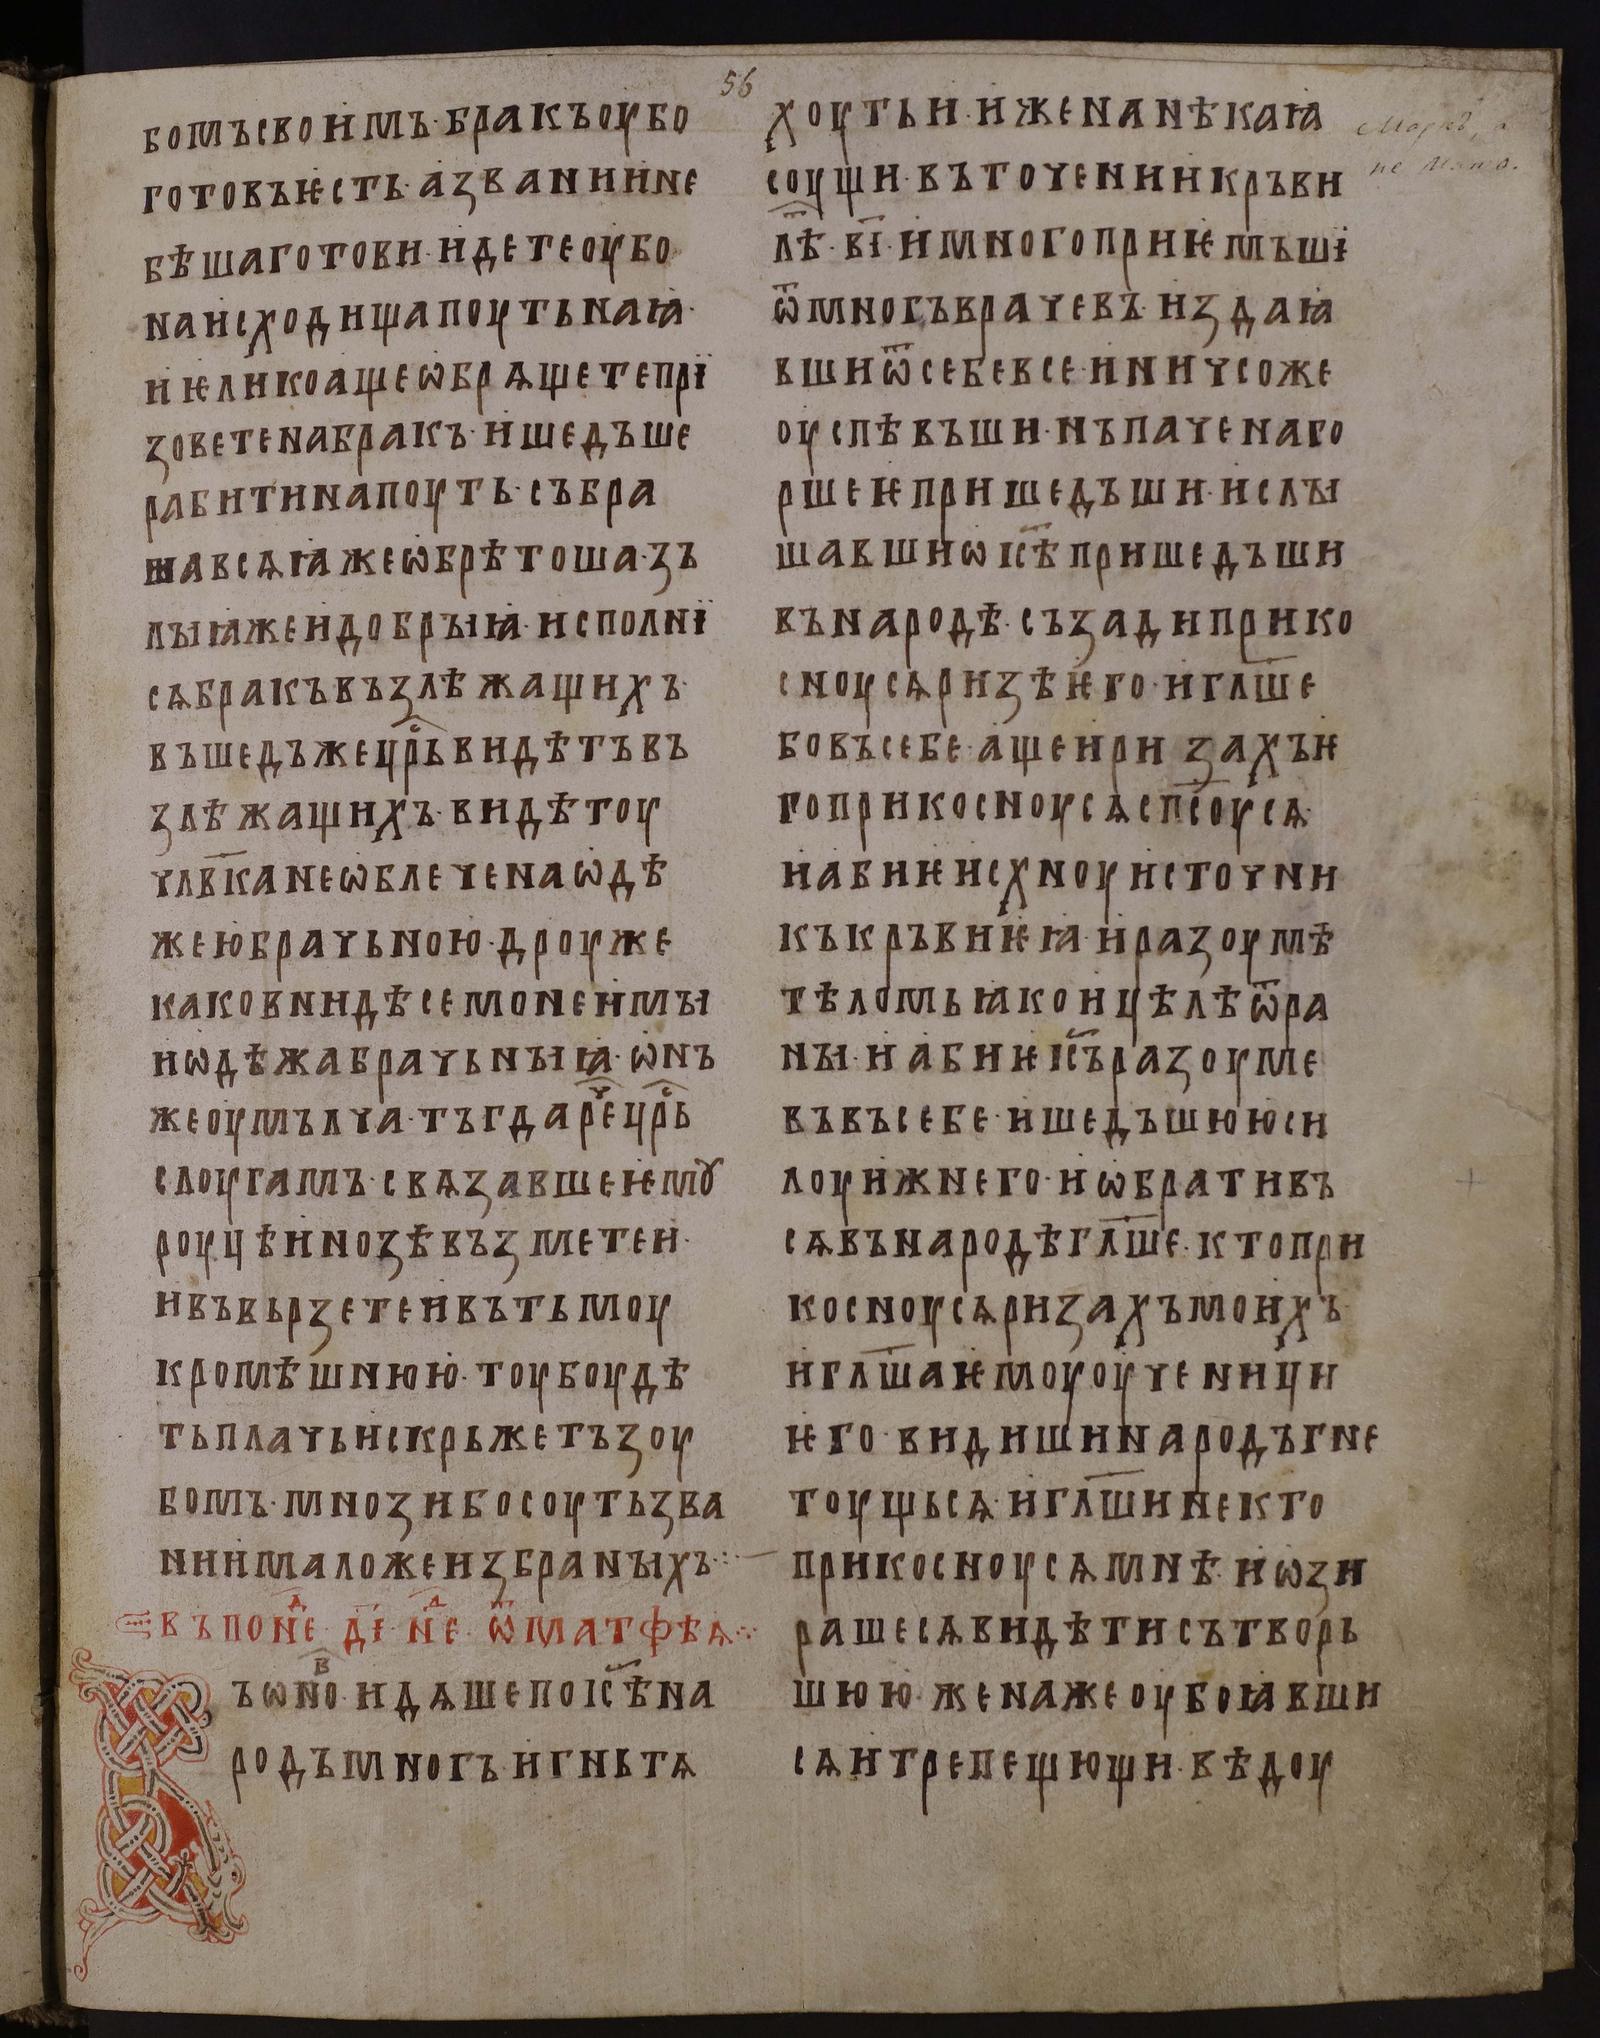 56
бомъсвоимъ·бракъоубо
готовъѥсть·азваниине
бѣшаготови·идетеоубо
наисходищапоутьнаꙗ·
иѥликоащеѡбрѧщетепрї
зоветенабракъ·ишедъше
рабитинапоуть·събра
шавсѧꙗжеѡбрѣтоша·зъ
лыꙗжеидобрыꙗ·исполнї
сѧбракъвъзлѣжащихъ·
въшедъжецр҃ьвидѣтъвъ
злѣжащихъ·видѣтоу
члв҃канеѡблеченаѡдѣ
жеюбрачьною·дроуже
каковнидѣсемонеимы
иѡдѣжабрачьныꙗ·ѡнъ
жеоумълча·тъгдареч҃цр҃ь
слоугамъ·свѧзавшеѥмꙋ
роуцѣинозѣвъзметеи·
ивъвьрзетеивътьмоу
кромѣшнюю·тоубоудѣ
тьплачьискрьжетъзоу
бомъ·мнозибосоутьзва
ниималожеизбраныхъ·:·
въпонед҃·ді҃·нед҃·ѿматфѣѧ·:·
Въѡно·в҃идѧшепоіс҃ѣна
родъмногъ·игнѣтѧ
хоутьи·иженанѣкаꙗ
соущи·въточениикръви
лѣт҃·ві҃·имногоприѥмъші
ѿмногъврачевъ·издаꙗ
вшиѿсебевсе·иничсоже
оуспѣвъши·нъпаченаго
ршеѥпришедъши·ислы
шавшиѡіс҃ѣпришедъши
въиародѣ·съзадиприко
сноусѧризѣѥго·игл҃ше
бовъсебе·ащеири захъѥ
гоприкосноусѧсп҃соусѧ·
иабиѥисхноуисточни
къкръвиѥꙗ·иразоумѣ
тѣломьꙗкоицѣлѣѿра
ны·иабиѥіс҃ъразоуме
въвъсебе·ишедъшююси
лоуижнего·иѡбративъ
сѧвънародѣгл҃ше·ктопри
косноусѧризахъмоихъ·
игл҃шаѥмоуоученици
ѥго·видишинародъгне
тоущьсѧ·игл҃шинекто
прикосноусѧмнѣ·иѡзи
рашесѧвидѣтисътворь
шюю·женажеоубоꙗвши
сѧитрепещющи·вѣдоу